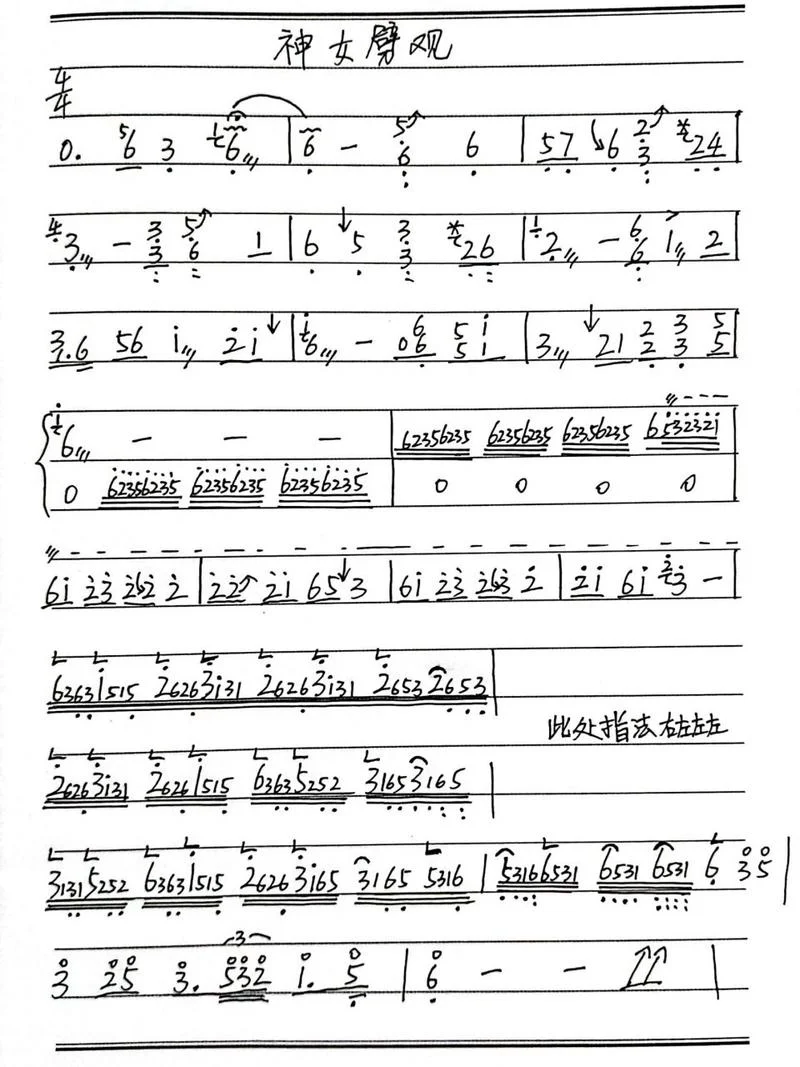 神女劈观
4/4
0. 56 3 1/2 6 | 6 - 5 6 6 | 57 6 2 3 24 |
4 3 - 3 3 5 6 1 | 6 5 3 3 26 | 1 2 - 6 6 1 2 |
3 1.6 56 i 2i | i 6 - 06 6 5 5 i 1 | 3 21 2 2 3 3 5 5 |
1 6 - - - | 62356235 62356235 62356235 6532321
0 62356235 62356235 62356235 | 0 0 0 0
6i 23 22 2 | 22 2i 65 3 | 6i 23 23 2 | 2i 6i 3 3 - |
63631515 26263i31 26263i31 26532653 |
此处指法右左左左
26263i31 26261515 63635252 31653165 |
31315252 63631515 26263i65 3165 5316 | 53166531 6531 6531 6 35 |
3 25 3. 3 532 i. 5 | 6 - - |